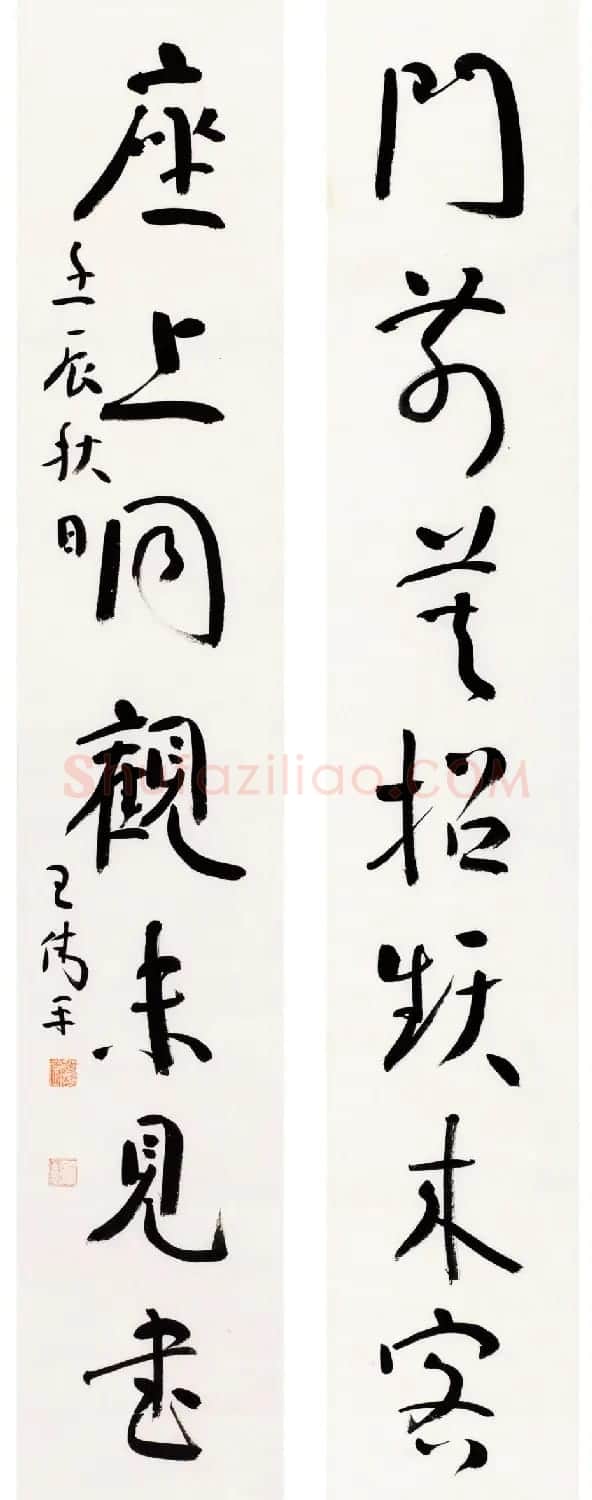 門前莫招頻来客
座上同觀未見書
壬辰秋日
王偉平
Shufaziliao.COM